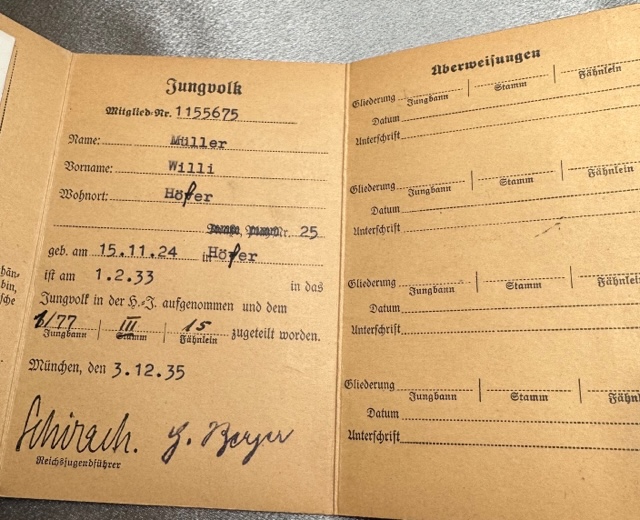 Jungvolk
Mitglied-Nr. 1155675
Name: Müller
Vorname: Willi
Wohnort: Höfer
Nr. 25
geb. am 15.11.24 in Höfer
ist am 1.2.33 in das
Jungvolk in der H.-J. aufgenommen und dem
1/77 III 15 zugeteilt worden.
Jungbann Stamm Fähnlein
München, den 3.12.35
Schirach. G. Berger
Reichsjugendführer
hän-
bin,
sche
Überweisungen
Gliederung
Jungbann Stamm Fähnlein
Datum
Unterschrift
Gliederung
Jungbann Stamm Fähnlein
Datum
Unterschrift
Gliederung
Jungbann Stamm Fähnlein
Datum
Unterschrift
Gliederung
Jungbann Stamm Fähnl
Datum
Unterschrift